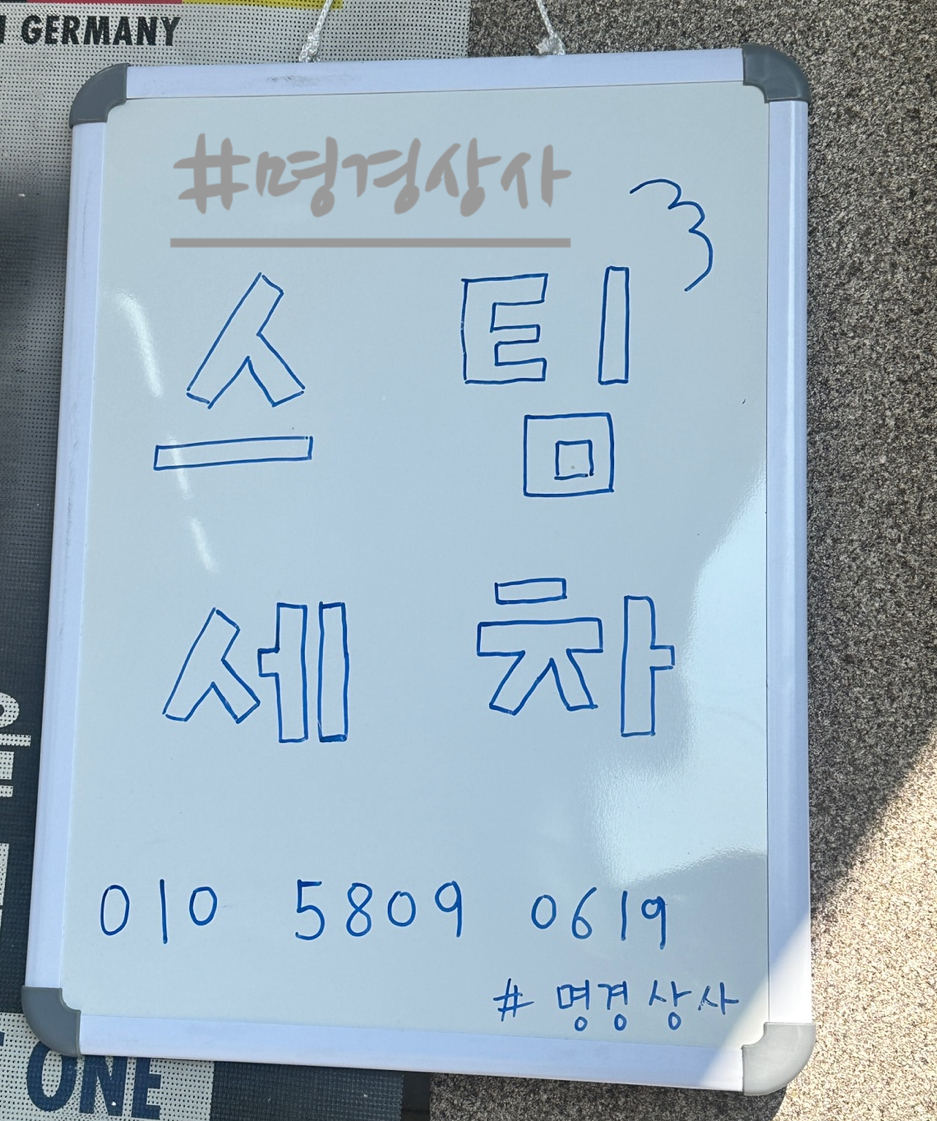 GERMANY
#명경상사
스팀
세차
010 5809 0619
# 명경상사
ONE